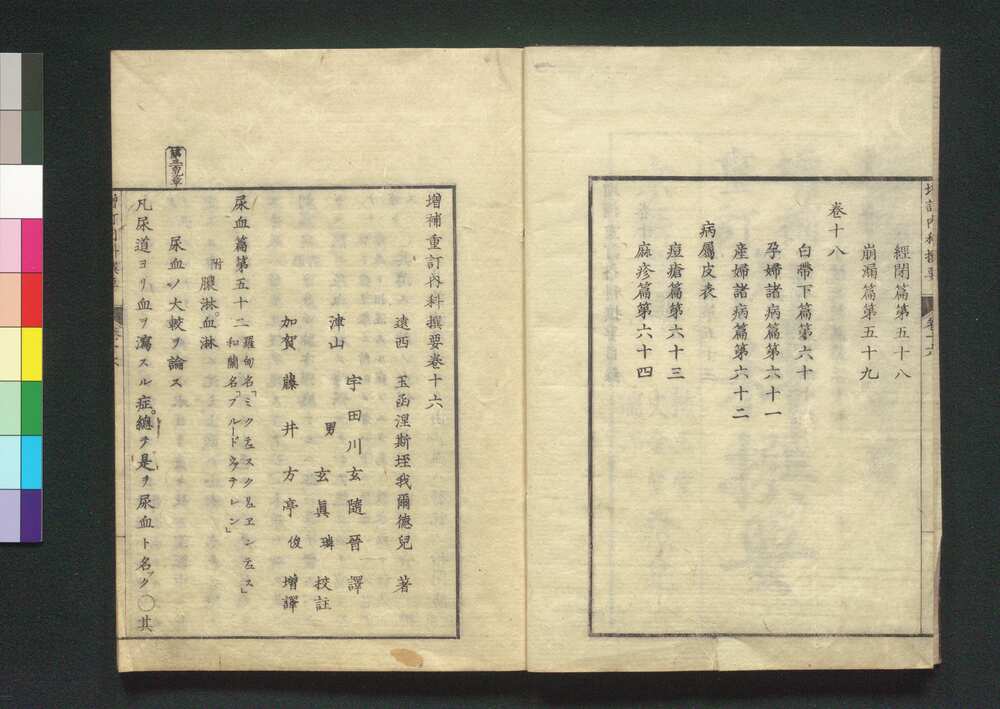 經閉篇第五十八
崩漏篇第五十九
卷十八
白帶下篇第六十
孕婦諸病篇第六十一
産婦諸病篇第六十二
病屬皮表
痘瘡篇第六十三
麻疹篇第六十四
增補重訂內科撰要卷十六
遠西 玉函涅斯垤我爾德兒 著
宇田川玄隨晉 譯
津山 男 玄眞璘 挍註
加賀 藤井方亭俊 增譯
尿血篇第五十二 羅甸名「ミクチュスクリュエンチュス」
和蘭名「ブルードウァテレン」
附 膿淋。血淋
尿血ノ大較ヲ論ス
第三百九章
凡尿道ヨリ血ヲ瀉スル症。總テ是ヲ尿血ト名ク○其